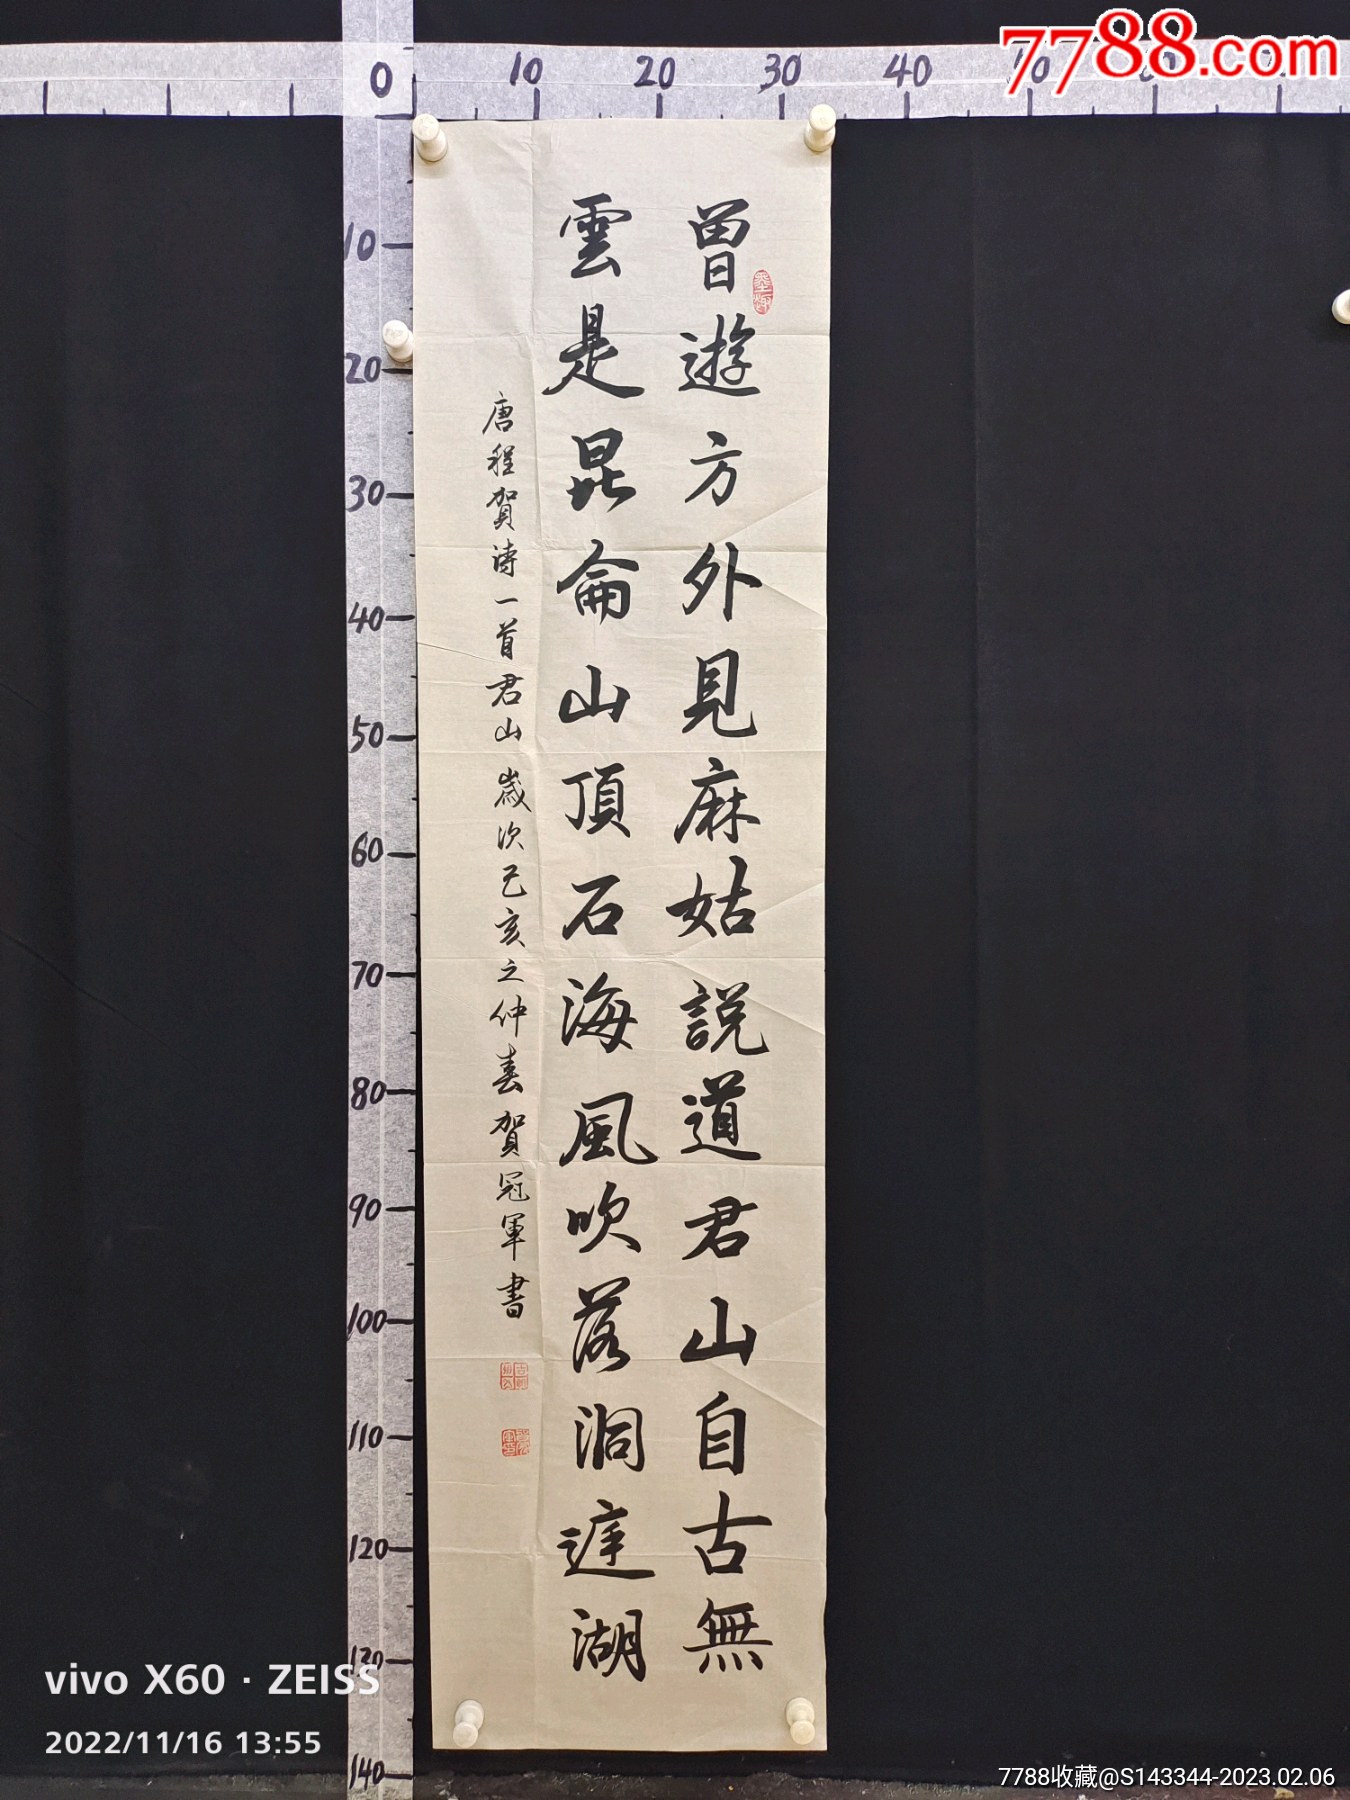 7788.com
0 10 20 30 40
10
20
30
40
50
60
70
80
90
100
110
120
130
140
曾遊方外見麻姑說道君山自古無
雲是昆侖山頂石海風吹落洞庭湖
唐程賀詩一首君山歲次己亥之仲春賀冠軍書
vivo X60 · ZEISS
2022/11/16 13:55
7788收藏@S143344-2023.02.06